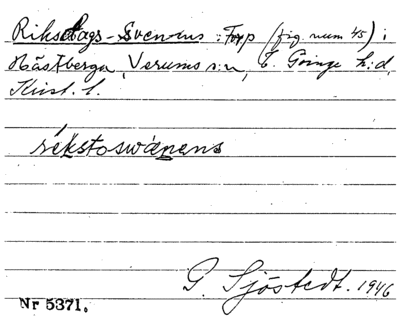 Riksdags-Svenens: Torp (fig. num 45) i
Hästberga, Verums s:n, V. Göinge h:d,
Krist. l.
rékstoswänens
G. Sjöstedt. 1946
Nr 5371.